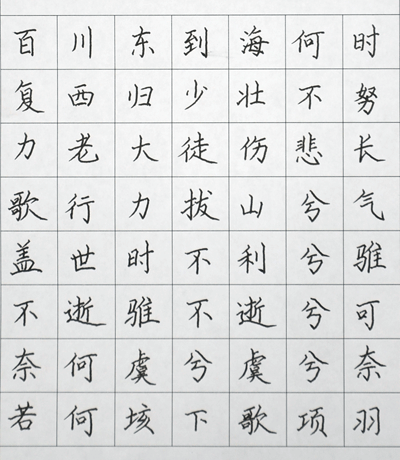 百川东到海何时
复西归少壮不努
力老大徒伤悲长
歌行力拔山兮气
盖世时不利兮骓
不逝骓不逝兮可
奈何虞兮虞兮奈
若何垓下歌项羽